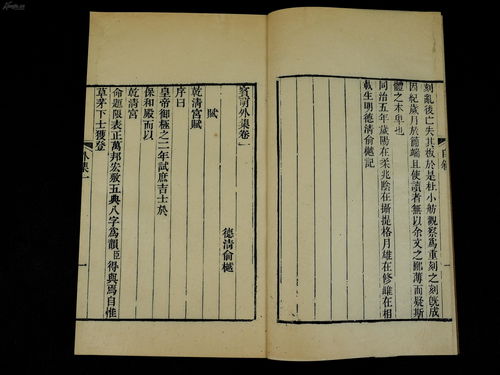 刻亂後亡失其板於是杜小舫觀察為重刻之刻既成
因紀歲月於簡端且使讀者無以余文之膚薄而疑斯
體之木卑也
同治五年歲陽在柔兆陰在攝提格月雄在修雌在相
哉生明德清俞樾記
自敘
賓萌外集卷一
德清俞樾
賦
乾清宮賦
序曰
皇帝御極之二年試庶吉士於
保和殿而以
乾清宮
命題限表正萬邦宏敷五典八字為韻臣得與焉自惟
草茅下士獲登
外集一
一